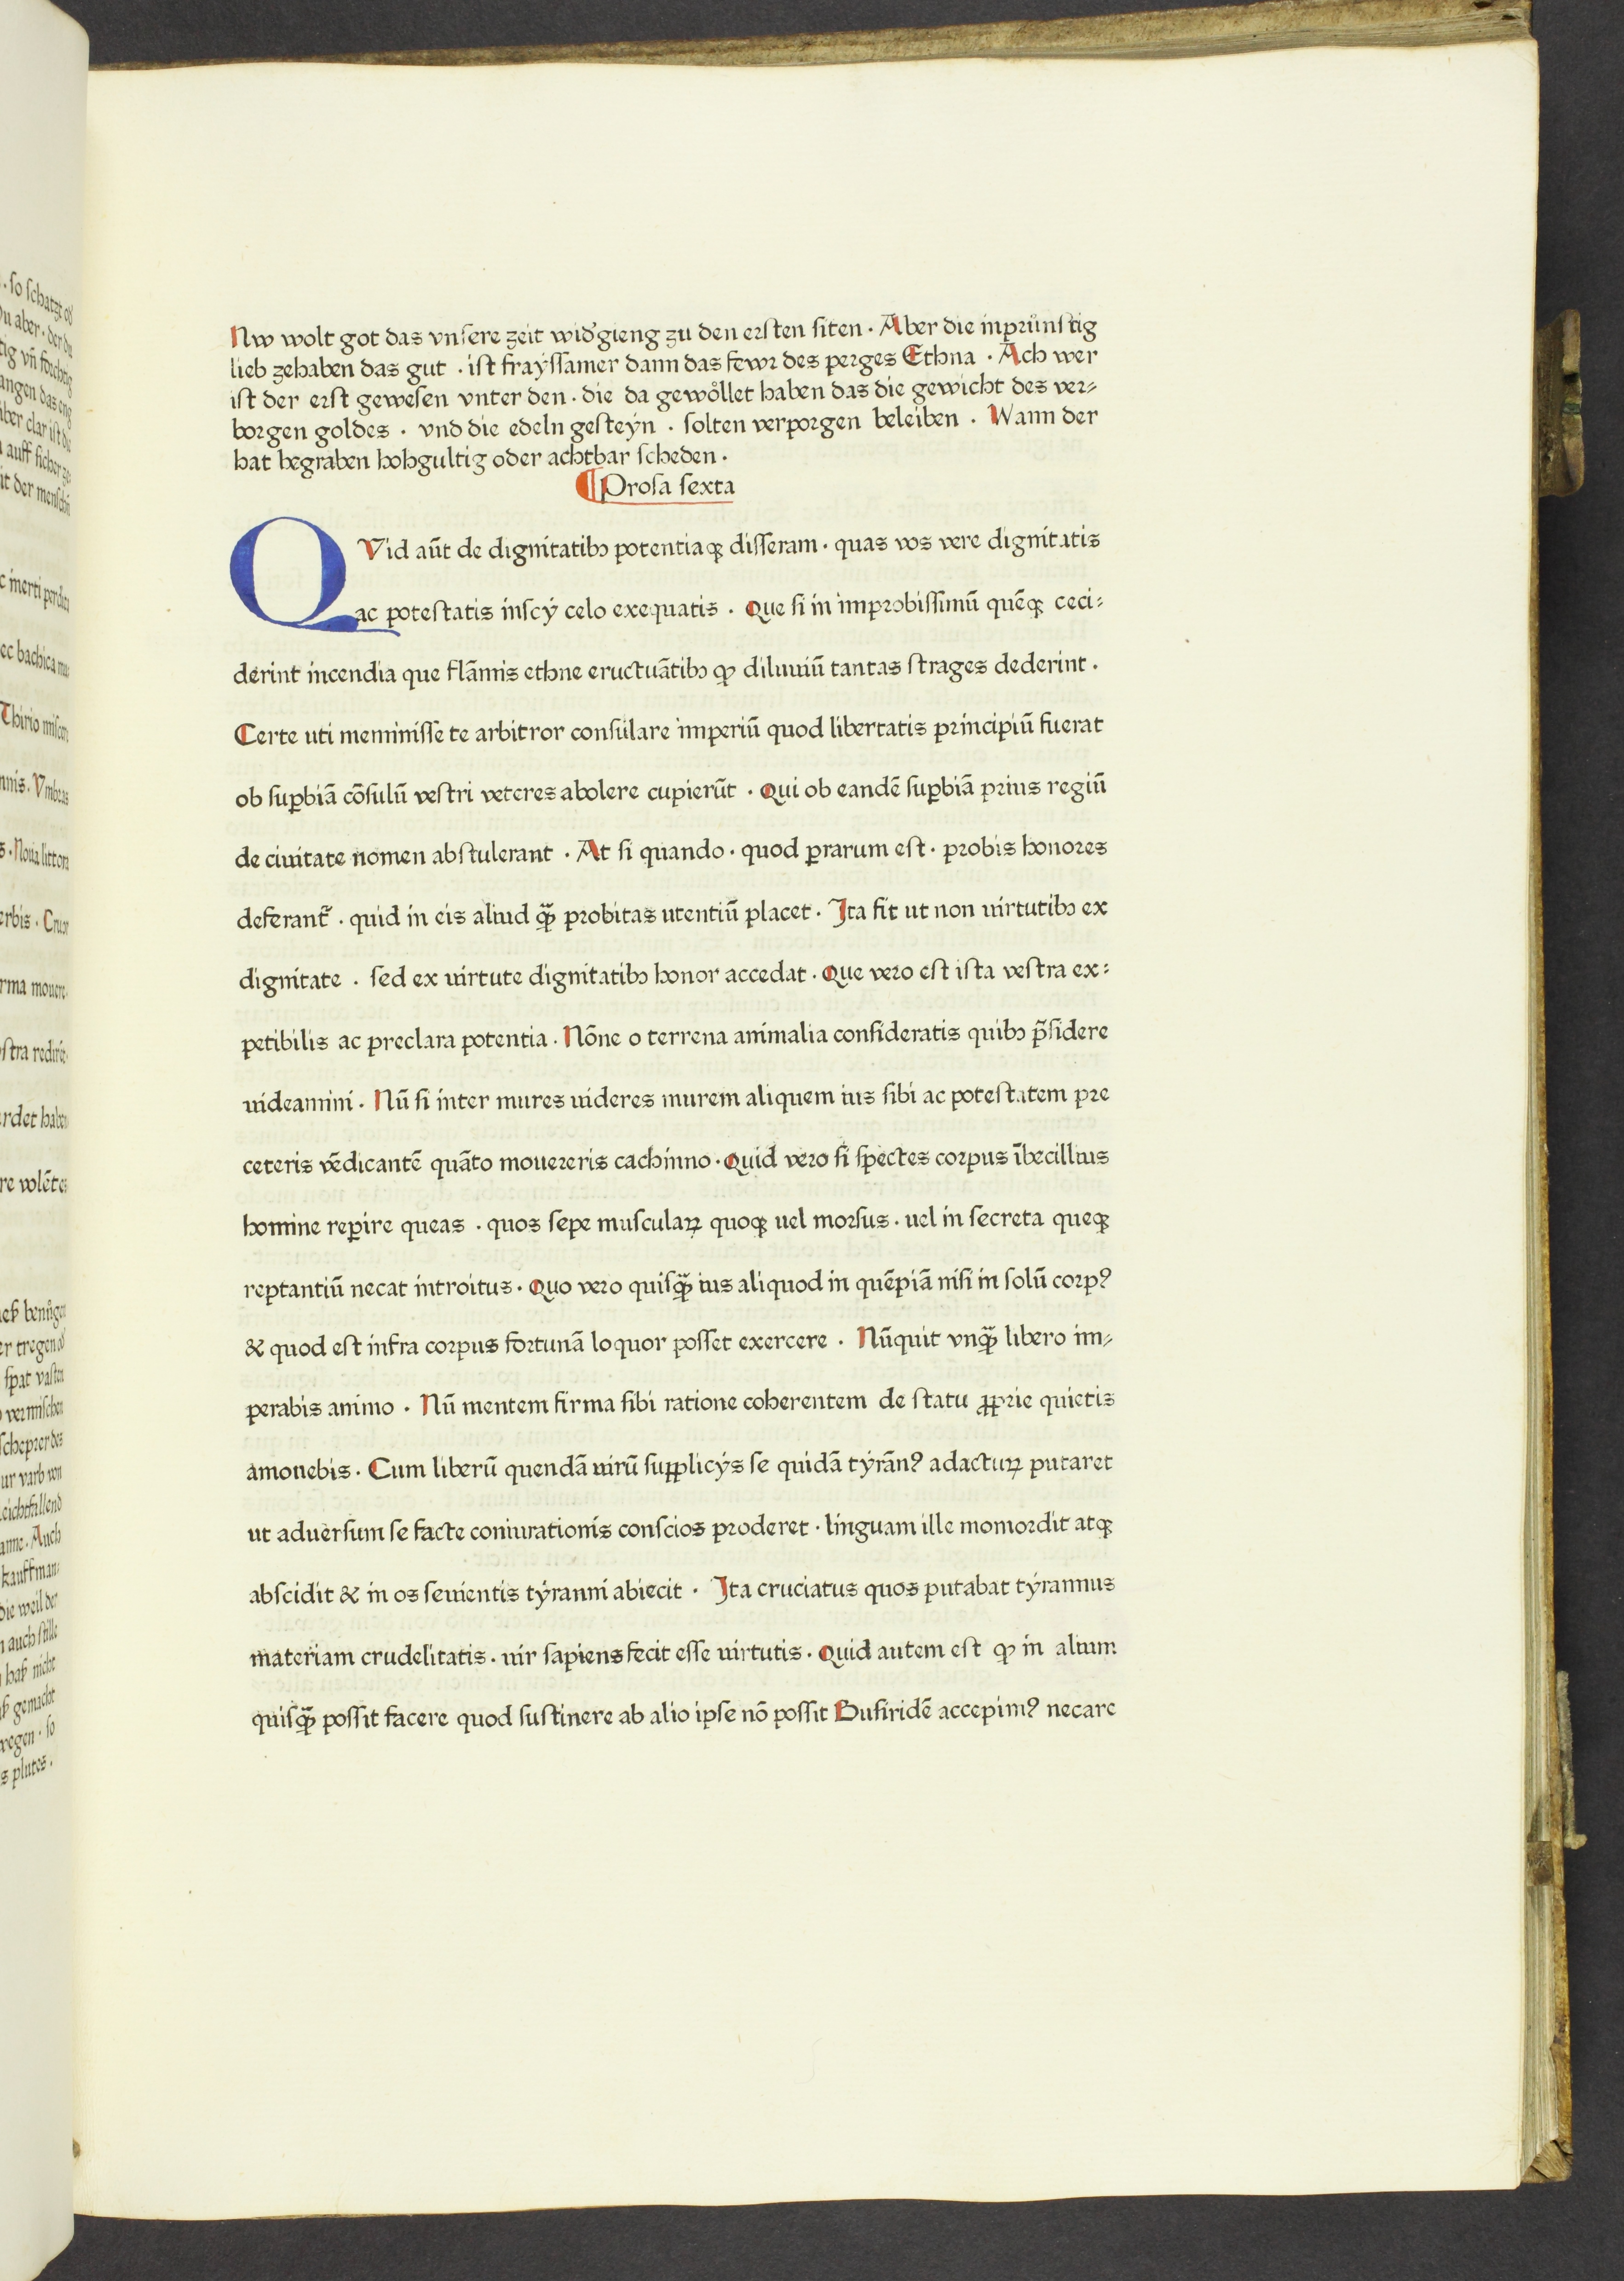 Nw wolt got das vnſere zeit wid'gieng zu den erſten ſiten · Aber die inprünſtig
lieb zehaben das gut · iſt frayſſamer dann das fewr des perges Ethna · Ach wer
iſt der erſt geweſen vnter den · die da gewöllet haben das die gewicht des ver⸗
borgen goldes · vnd die edeln geſteyn · ſolten verporgen beleiben · Wann der
hat begraben hohgultig oder achtbar ſcheden ·
¶ Proſa ſexta
QVid aūt de dignitatibꝫ potentiaqꝫ diſſeram · quas vos vere dignitatis
ac poteſtatis inſcÿ celo exequatis · Que ſi in improbiſſimū quēqꝫ ceci⸗
derint incendia que flāmis ethne eructuātibꝫ ꝙ diluuiū tantas ſtrages dederint ·
Certe uti meminiſſe te arbitror conſulare imperiū quod libertatis principiū fuerat
ob ſuꝑbiā cōſulū veſtri veteres abolere cupierūt · Qui ob eandē ſuꝑbiā prius regiū
de ciuitate nomen abſtulerant · At ſi quando · quod ꝑrarum eſt · probis honores
deferant᷑ · quid in eis aliud qꝫ̄ probitas utentiū placet · Ita fit ut non uirtutibꝫ ex
dignitate · ſed ex uirtute dignitatibꝫ honor accedat · Que vero eſt iſta veſtra ex⸗
petibilis ac preclara potentia · Nōne o terrena animalia conſideratis quibꝫ p̄ſidere
uideamini · Nū ſi inter mures uideres murem aliquem ius ſibi ac poteſtatem pre
ceteris vēdicantē quāto mouereris cachinno · Quid vero ſi ſpectes corpus ībecillius
homine reꝑire queas · quos ſepe muſcularꝝ quoqꝫ uel morſus · uel in ſecreta queqꝫ
reptantiū necat introitus · Quo vero quiſqꝫ̄ ius aliquod in quēpiā niſi in ſolū corpꝰ
& quod eſt infra corpus fortunā loquor poſſet exercere · Nūquit vnqꝫ̄ libero im⸗
perabis animo · Nū mentem firma ſibi ratione coherentem de ſtatu ꝓprie quietis
amouebis · Cum liberū quendā uirū ſuppliciÿs ſe quidā tÿrānꝰ adacturꝝ putaret
ut aduerſum ſe facte coniurationis conſcios proderet · linguam ille momordit atqꝫ
abſcidit & in os ſeuientis tÿranni abiecit · Ita cruciatus quos putabat tÿrannus
materiam crudelitatis · uir ſapiens fecit eſſe uirtutis · Quid autem eſt ꝙ in alium
quiſqꝫ̄ poſſit facere quod ſuſtinere ab alio ipſe nō poſſit Buſiridē accepimꝰ necare